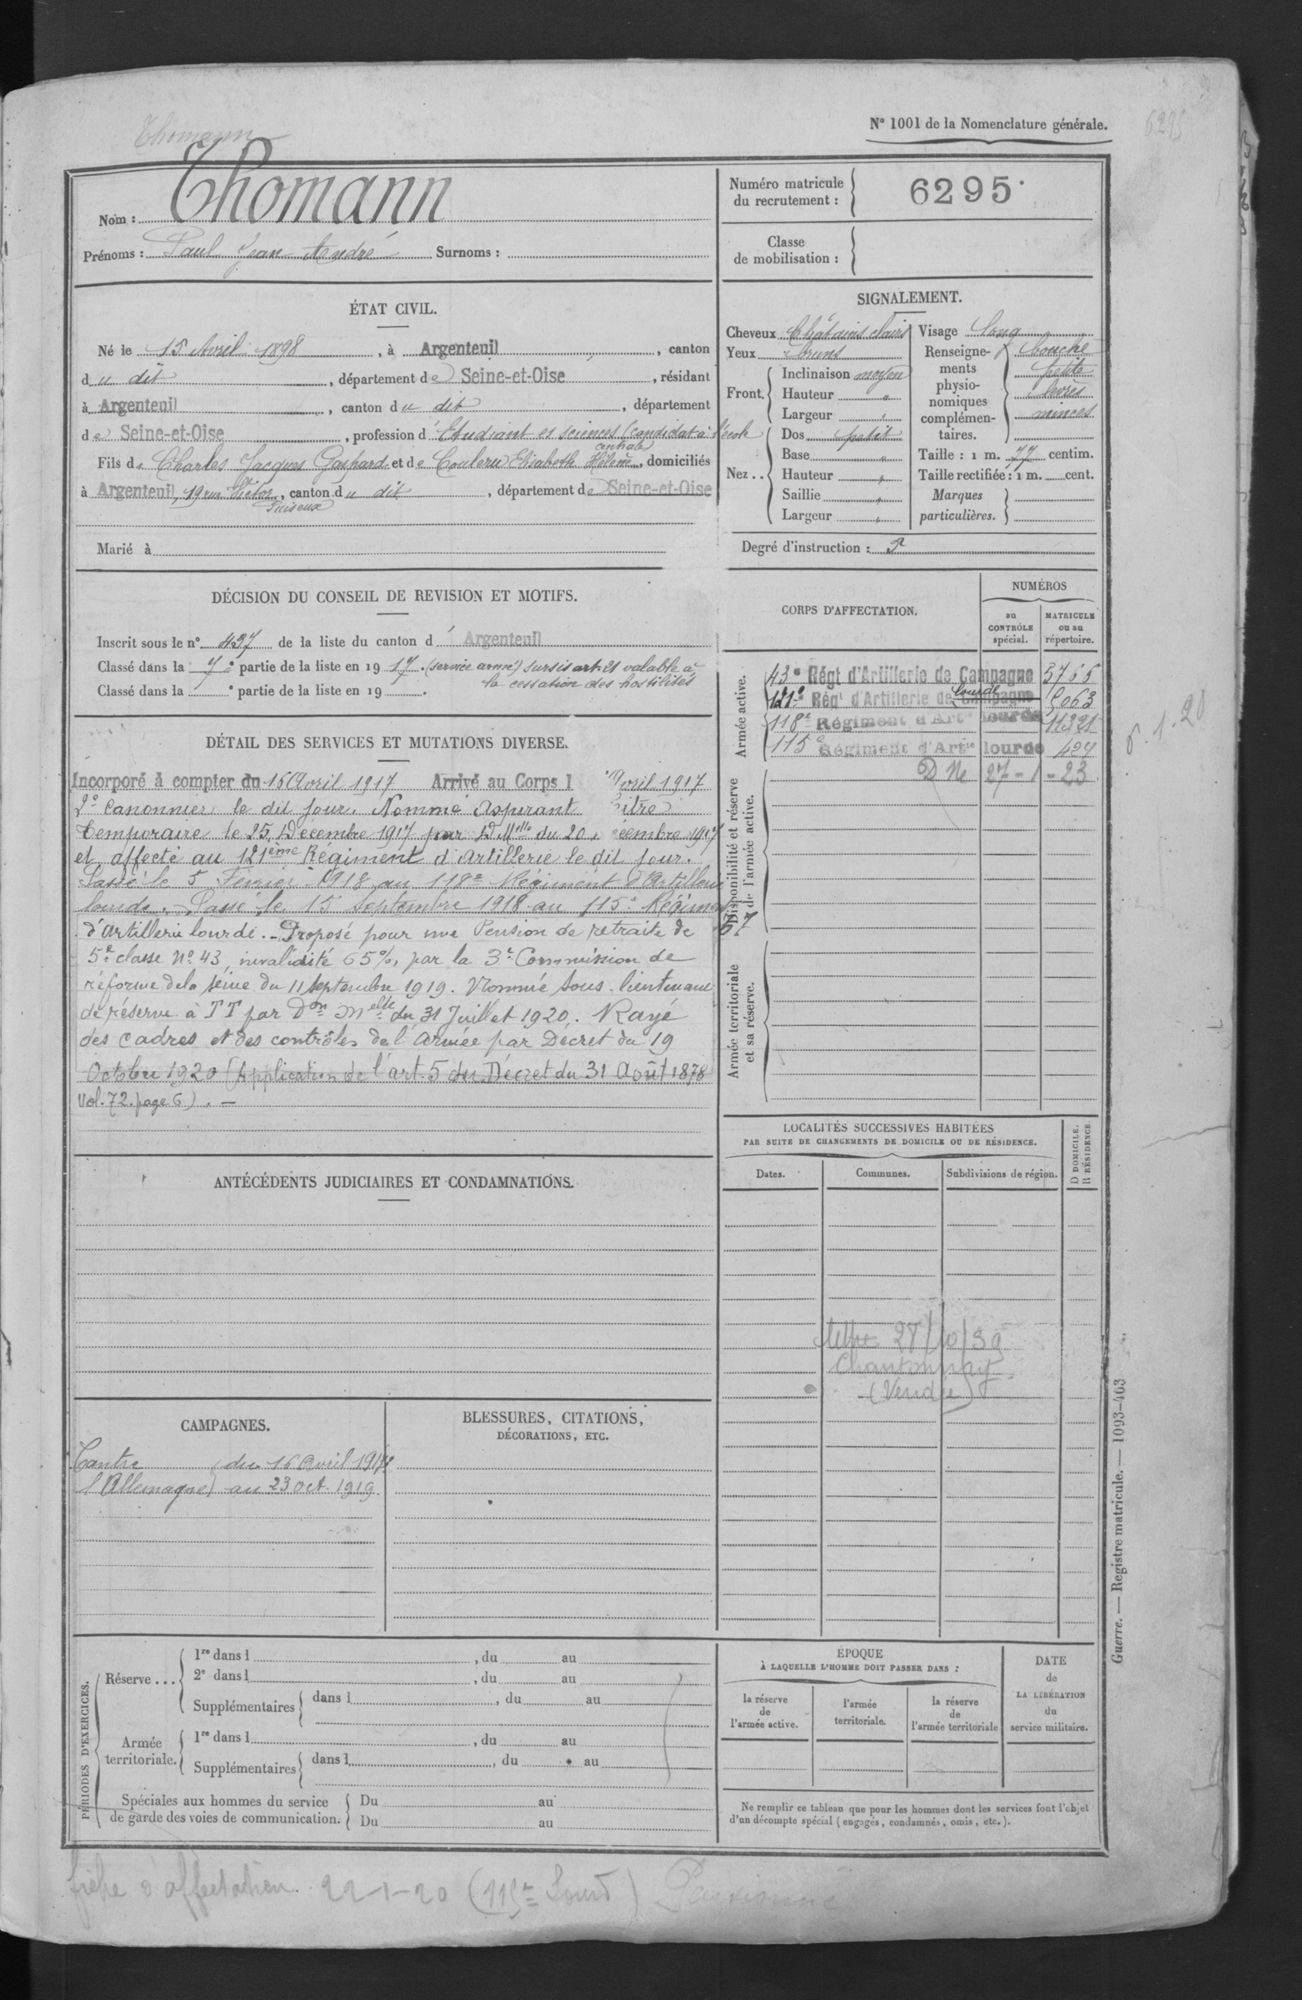 Thomann
N° 1001 de la Nomenclature générale.
6295
Nom : Thomann
Prénoms : Paul Jean André Surnoms :
Numéro matricule du recrutement : 6295
Classe de mobilisation :
ÉTAT CIVIL.
Né le 15 Avril 1898, à Argenteuil, canton
du dit, département de Seine-et-Oise, résidant
à Argenteuil, canton du dit, département
de Seine-et-Oise, profession d'Etudiant es sciences (candidat à l'école
centrale)
Fils de Charles Jacques Gaspard et de Couleru Elisabeth Hélène, domiciliés
à Argenteuil, 19 rue Victor, canton du dit, département de Seine-et-Oise
Puiseux
Marié à
SIGNALEMENT.
Cheveux Châtains clairs
Yeux bruns
Front. Inclinaison moyen
Hauteur "
Largeur "
Nez .. Dos petit
Base "
Hauteur "
Saillie "
Largeur "
Visage long
Renseignements physionomiques complémentaires. bouche
petite
lèvres
minces
Taille : 1 m. 77 centim.
Taille rectifiée : 1 m. cent.
Marques particulières.
Degré d'instruction :
DÉCISION DU CONSEIL DE REVISION ET MOTIFS.
Inscrit sous le n° 437 de la liste du canton d'Argenteuil
Classé dans la 7e partie de la liste en 1917. (service armé) sursis art. 21 valable à
la cessation des hostilités
Classé dans la e partie de la liste en 19 .
DÉTAIL DES SERVICES ET MUTATIONS DIVERSE.
Incorporé à compter du 16 Avril 1917 Arrivé au Corps l Avril 1917
2e Canonnier le dit jour. Nommé Aspirant titre
temporaire le 25 Décembre 1917 par D Mlle du 20 Décembre 1917
et affecté au 121ème Régiment d'Artillerie le dit jour.
Passé le 5 Février 1918 au 118e Régiment d'Artillerie
lourde. Passé le 15 Septembre 1918 au 115e Régiment
d'artillerie lourde. Proposé pour une Pension de retraite de
5e classe N° 43, invalidité 65%, par la 3e Commission de
réforme de la Seine du 11 Septembre 1919. Nommé Sous-lieutenant
de réserve à TT par Don Melle du 31 Juillet 1920. Rayé
des cadres et des contrôles de l'Armée par Décret du 19
Octobre 1920 (Application de l'art. 5 du Décret du 31 Août 1878
Vol. 72. page 6). -
CORPS D'AFFECTATION.
NUMÉROS
au CONTRÔLE spécial.
MATRICULE ou au répertoire.
Armée active.
43e Régt d'Artillerie de Campagne 3765
121e Régt d'Artillerie de Campagne lourde
118e Régiment d'Artie lourde
115e Régiment d'Artie lourde 424
27-1-23
6.1.20
Disponibilité et réserve de l'armée active.
67
Armée territoriale et sa réserve.
LOCALITÉS SUCCESSIVES HABITÉES
PAR SUITE DE CHANGEMENTS DE DOMICILE OU DE RÉSIDENCE.
Dates.
Communes.
Subdivisions de région.
D DOMICILE.
R RÉSIDENCE.
28/10/39
Chantonnay
(Vendée)
ANTÉCÉDENTS JUDICIAIRES ET CONDAMNATIONS.
CAMPAGNES.
Contre du 16 Avril 1917
l'Allemagne au 23 Oct. 1919
BLESSURES, CITATIONS,
DÉCORATIONS, ETC.
PÉRIODES D'EXERCICES.
Réserve... 1re dans l , du au
2e dans l , du au
Supplémentaires dans l , du au
Armée territoriale. 1re dans l , du au
Supplémentaires dans l , du au
Spéciales aux hommes du service de garde des voies de communication. Du au
Du au
ÉPOQUE
À LAQUELLE L'HOMME DOIT PASSER DANS :
la réserve de l'armée active.
l'armée territoriale.
la réserve de l'armée territoriale
DATE de LA LIBÉRATION du service militaire.
Ne remplir ce tableau que pour les hommes dont les services font l'objet
d'un décompte spécial (engagés, condamnés, omis, etc.).
Guerre. — Registre matricule. — 1093-463
fiche d'affectation 22-1-20 (115e Lourd) Pensionné